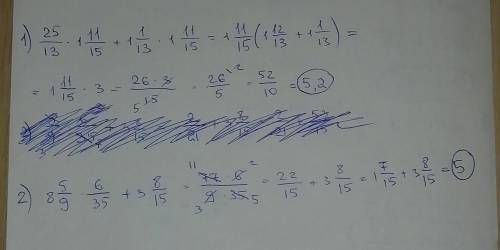 1) 25/13 · 1 11/15 + 1 1/13 · 1 11/15 = 1 11/15 (1 12/13 + 1 1/13) =
= 1 11/15 · 3 = 26 · 3/15 5 = 26/5 \·2 = 52/10 = 5,2
2) 8 5/9 · 6/35 + 3 8/15 = 11 77 · 6 2/3 9 · 35 5 = 22/15 + 3 8/15 = 1 7/15 + 3 8/15 = 5